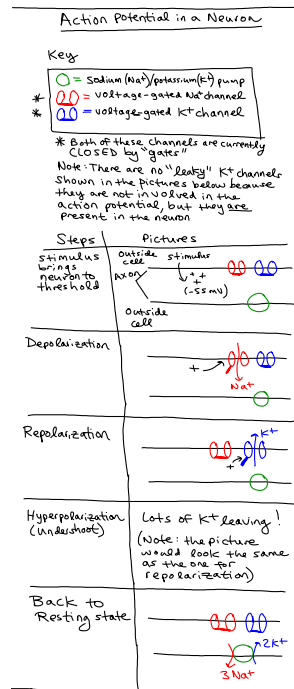 Action Potential in a Neuron
Key
= sodium (Na+)/potassium (K+) pump
* = voltage-gated Na+ channel
* = voltage-gated K+ channel
* Both of these channels are currently
CLOSED by "gates"
Note: There are no "leaky" K+ channels
shown in the pictures below because
they are not involved in the
action potential, but they are
present in the neuron
Steps
Pictures
stimulus
brings
neuron to
threshold
Outside
cell
stimulus
Axon
+
+ +
(-55mV)
Outside
cell
Depolarization
+
Na+
Repolarization
K+
+
Hyperpolarization
(undershoot)
Lots of K+ leaving!
(Note: the picture
would look the same
as the one for
repolarization)
Back to
Resting state
2K+
3 Na+